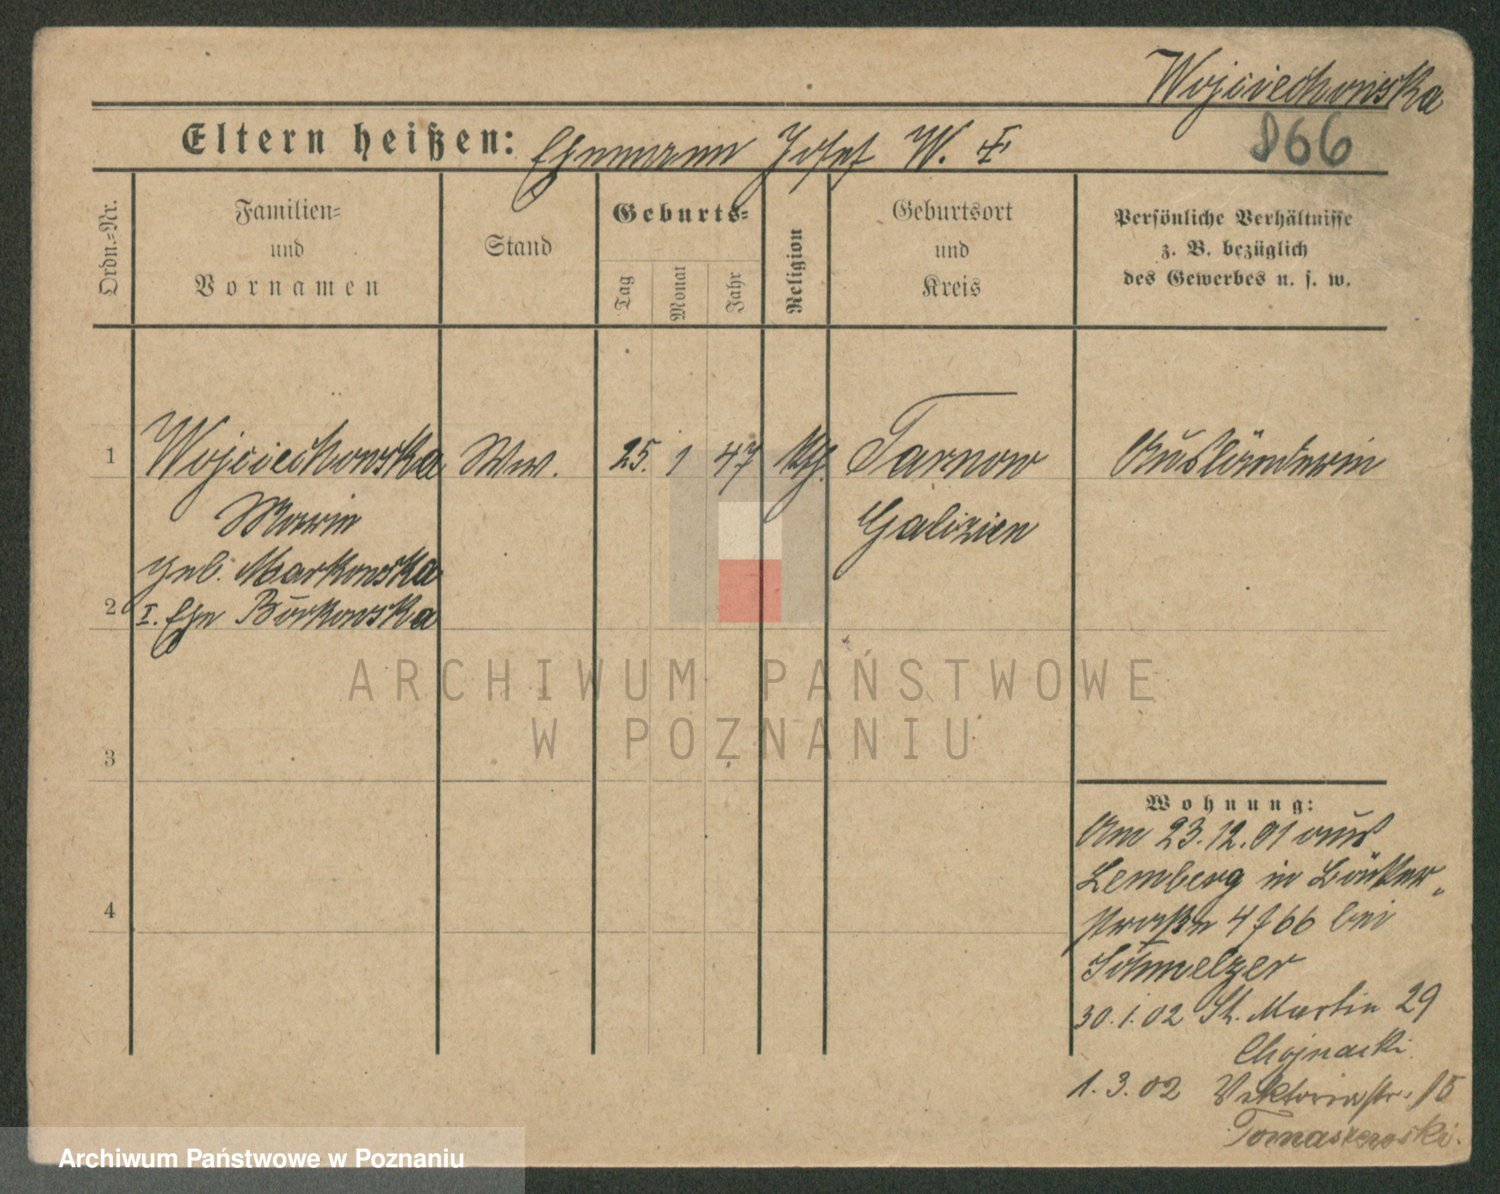 Wojciechowska
866
Eltern heißen: Ehemann Josef W. †
Ordn.=Nr.
Familien= und Vornamen
Stand
Geburts=
Tag
Monat
Jahr
Religion
Geburtsort und Kreis
Persönliche Verhältnisse
z. B. bezüglich
des Gewerbes u. s. w.
1 Wojciechowska Ww. 25. 1 47 Kth. Tarnow Ausländerin
Marie Galizien
geb. Markowska
2 I. Ehe Burkowska
ARCHIWUM PAŃSTWOWE
W POZNANIU
3
Wohnung:
Am 23.12.01 aus
Lemberg in Bäcker-
4
straße 4 f 66 bei
Schmelzer
30.1.02 St. Martin 29
Chojnacki
1.3.02 Viktoriastr. 15
Tomaszewski.
Archiwum Państwowe w Poznaniu